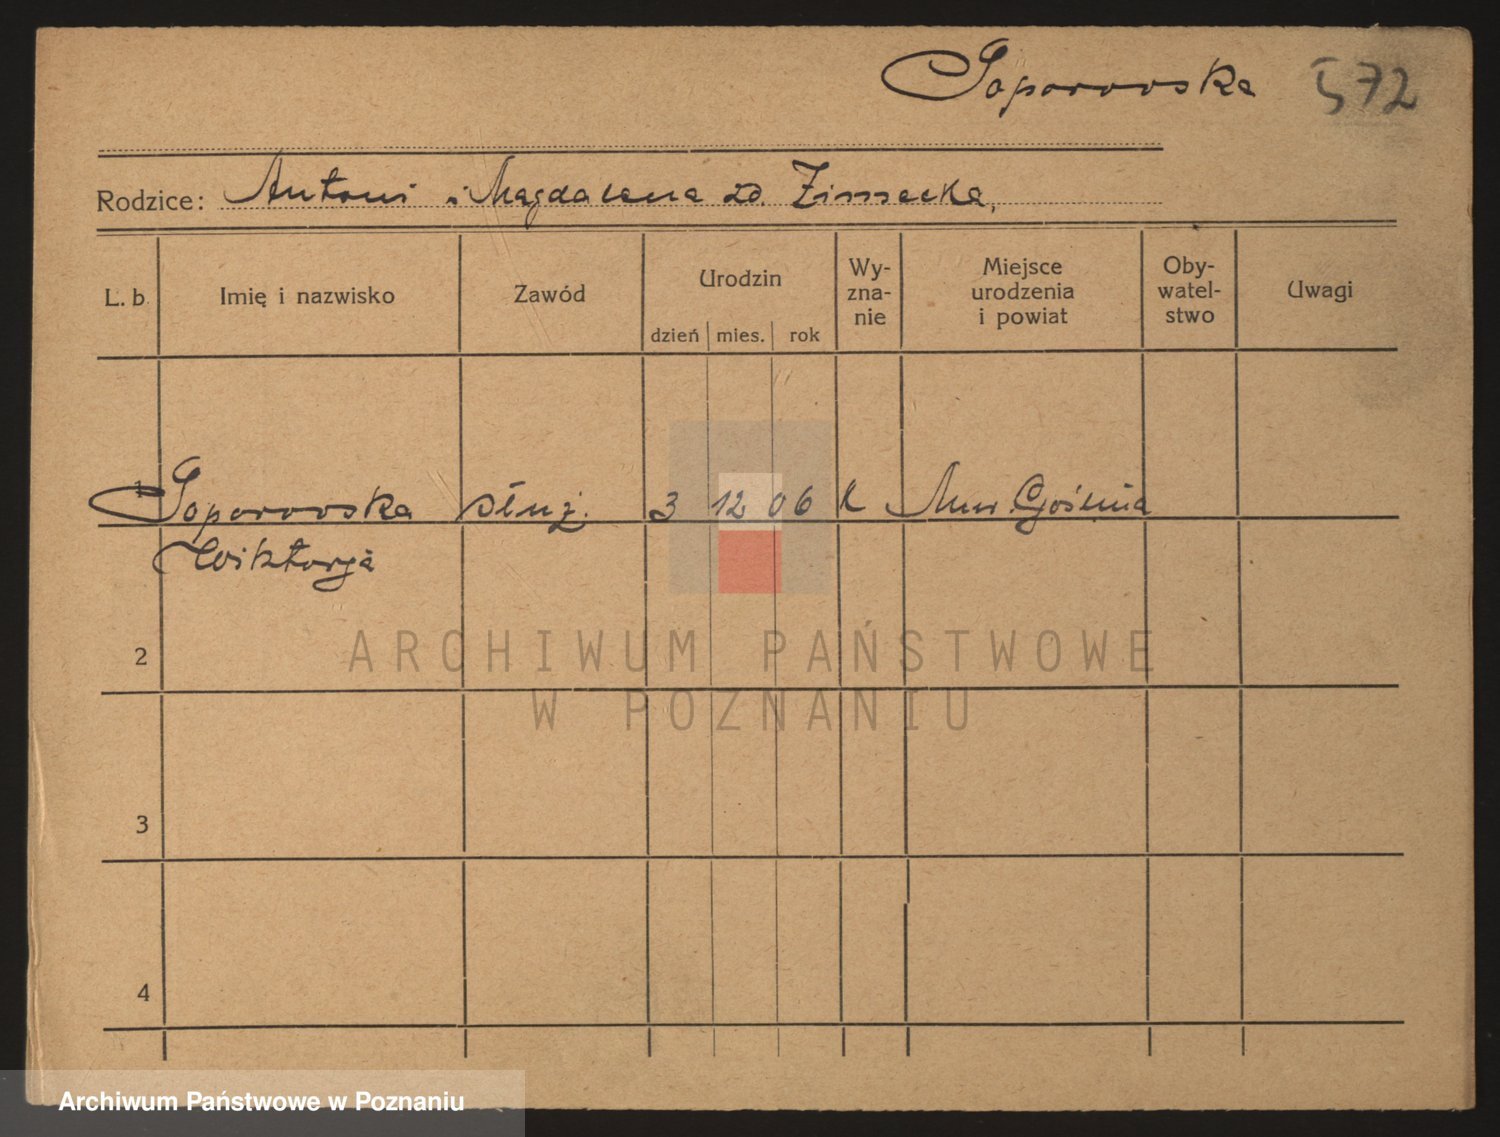 Toporowska 572
Rodzice: Antoni i Magdalena zd. Zimnecka,
L. b. Imię i nazwisko Zawód Urodzin dzień mies. rok Wy-zna-nie Miejsce urodzenia i powiat Oby-watel-stwo Uwagi
1 Toporowska służ. 3 12 06 k Mur. Goślina
Wiktorja
2
ARCHIWUM PAŃSTWOWE
W POZNANIU
3
4
Archiwum Państwowe w Poznaniu